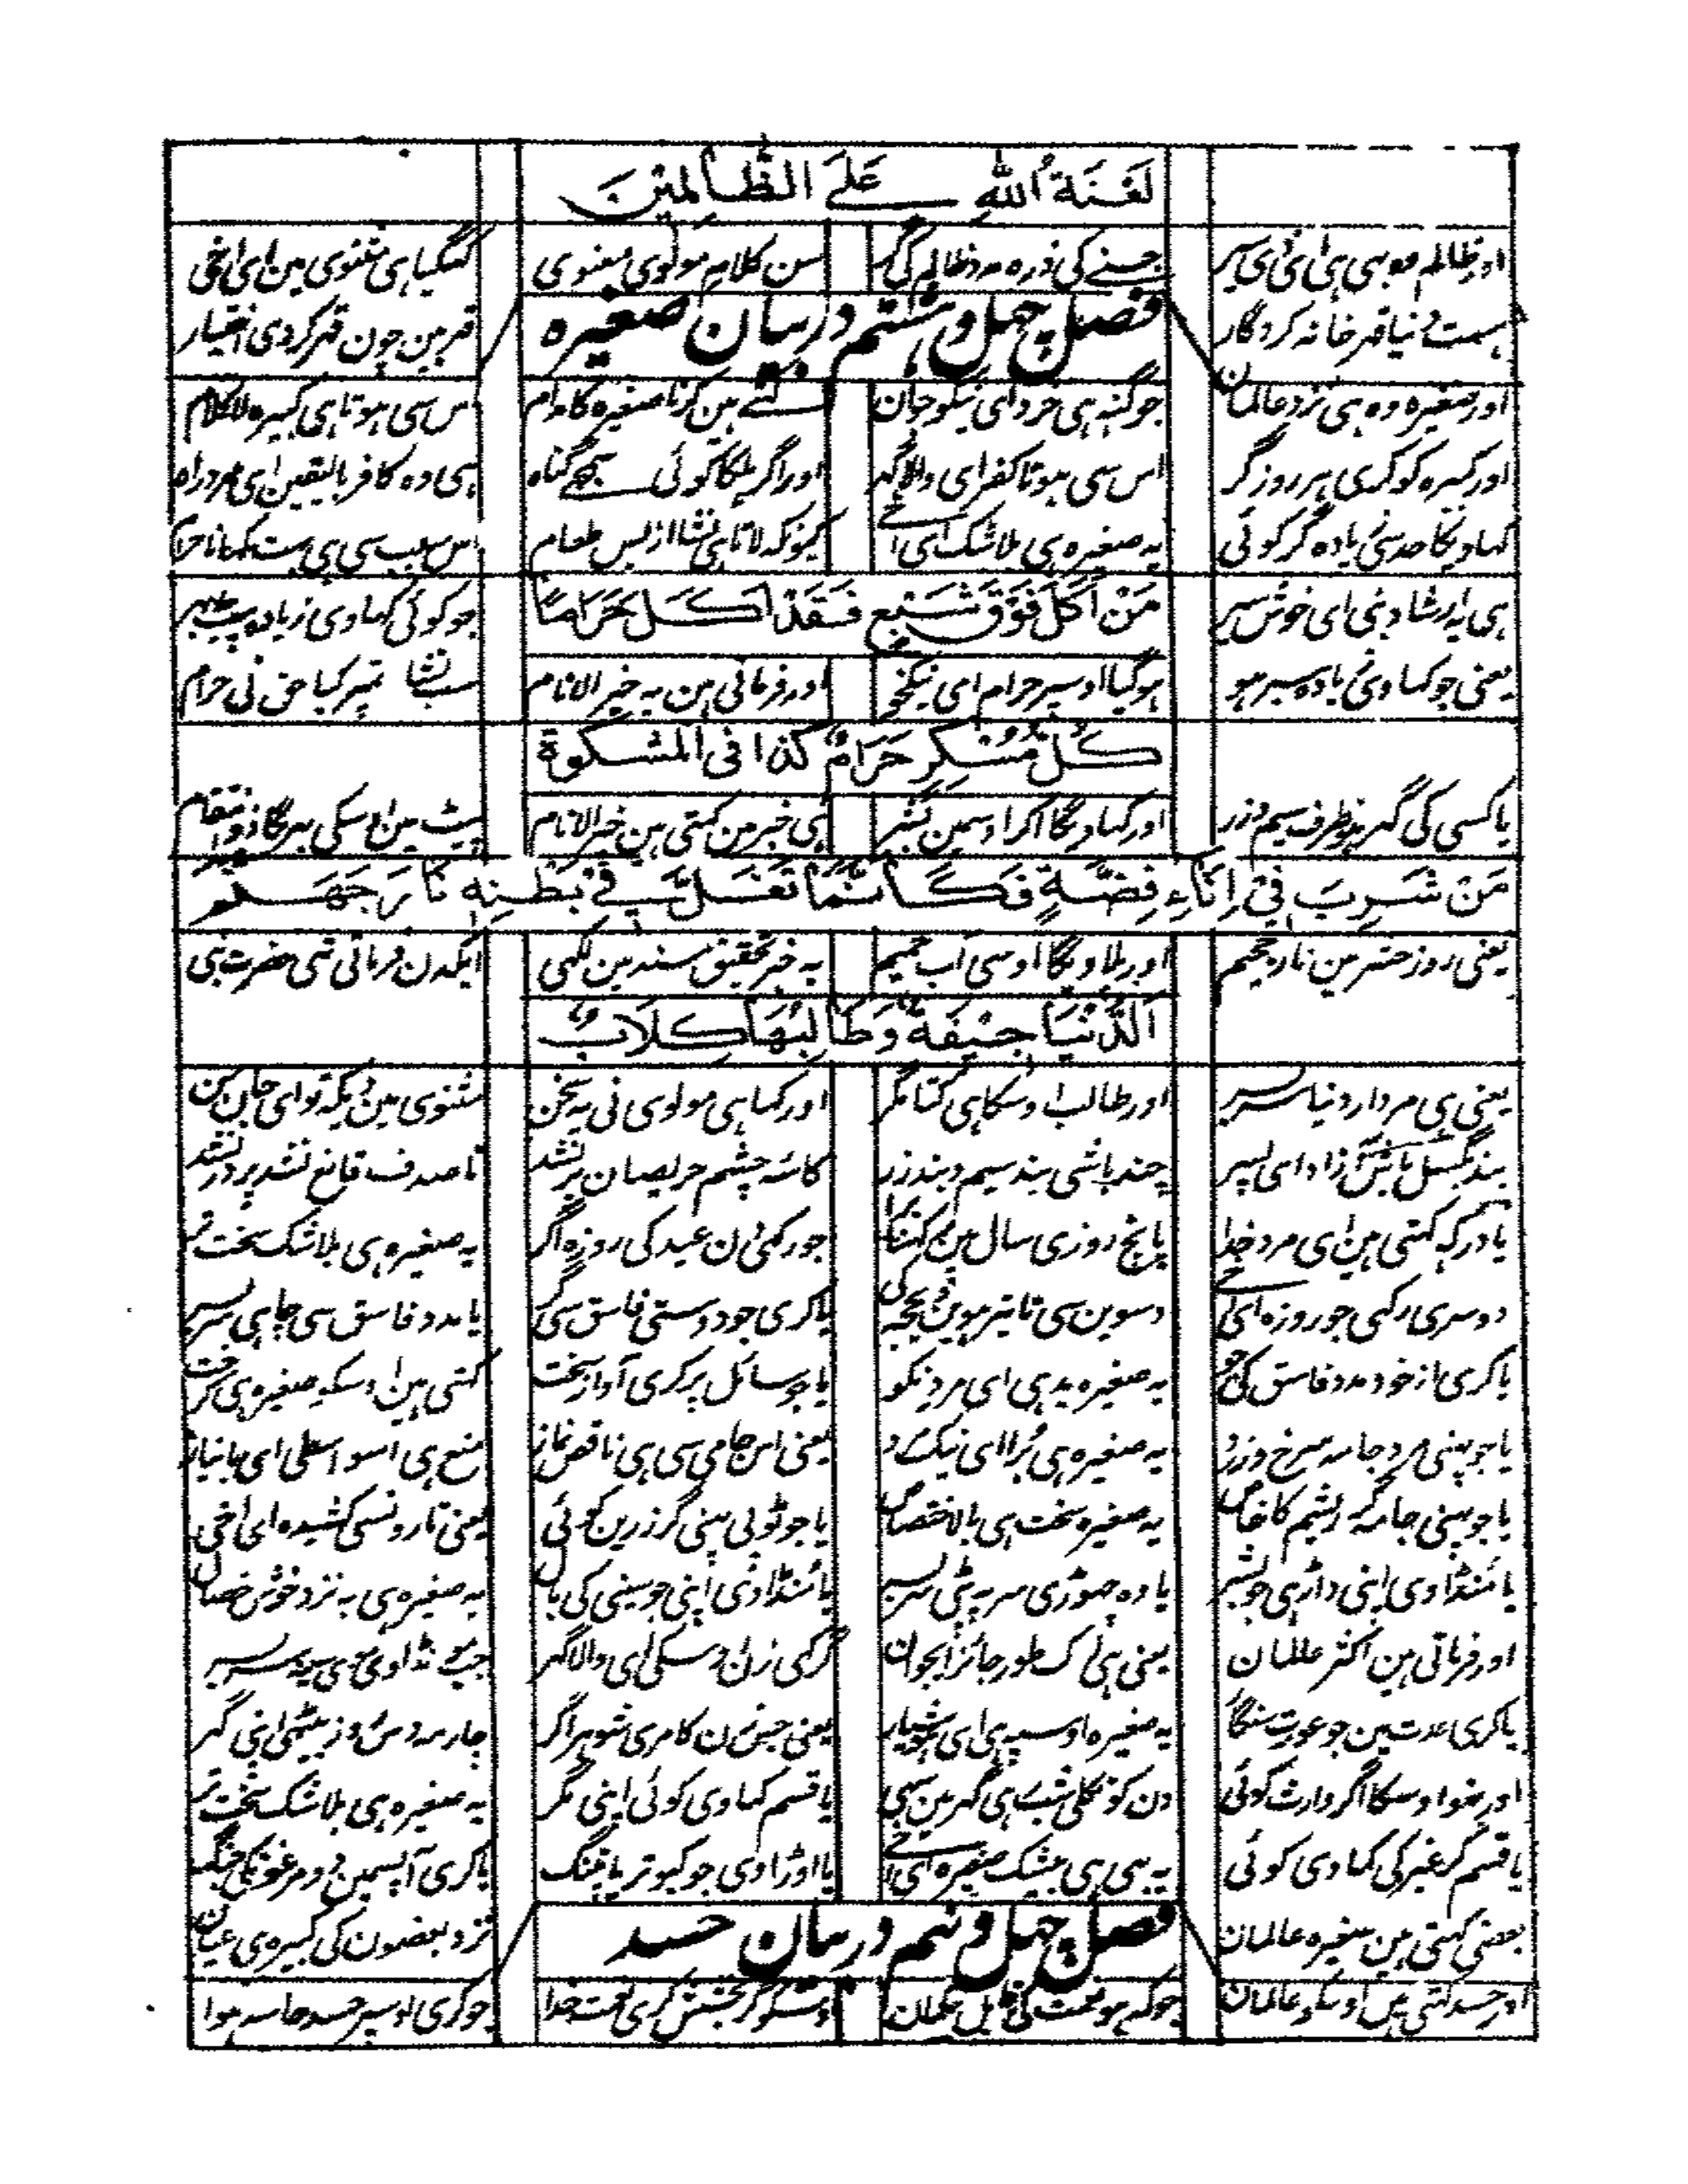 لَعْنَةُ اللهِ عَلَى الظَّالِمِيْنَ
اور ظالم وہ بہی ہی ای پسر جسنے کی ذرہ مدد ظالم کی گر سن کلام مولوی معنوی کہگیا ہی مثنوی مین ای اخی
ہست دنیا قہر خانہ کردگار قہر بین چون قہر کردی اختیار
فصل چہل و ہشتم در بیان صغیرہ
اور صغیرہ وہ ہی نزد عالمان جو گنہ ہی خرد ای نیکو جان کہتے ہین کرنا صغیرہ کا مدام اس سی ہوتا ہی کبیرہ لا کلام
اور کبیرہ کو کری ہر روز گر اس سی ہوتا کفر ای والا گہر اور اگر ہلکا کوئی سمجھے گناہ ہی وہ کافر بالیقین ای مرد راہ
کہاویگا حد سی زیادہ گر کوئی یہ صغیرہ ہی بلاشک ای اخے کیونکہ لاتا ہی نشا از بس طعام اس سبب سی ہی بہت کہانا حرام
ہی یہ ارشاد نبی ای خوش سیر مَنْ اَكَلَ فَوْقَ شَبْعٍ فَقَدْ اَكَلَ حَرَامًا جو کوئی کہاوی زیادہ پیٹ بہر
یعنی جو کہاوی زیادہ سیر ہو ہوگیا اوسپر حرام ای نیکخو اور فرماتی ہین یہ خیر الانام سب نشا تمپر کیا حق نی حرام
كُلُّ مُسْكِرٍ حَرَامٌ كذا فى المشكوة
یا کسی کی گہر مین ظرف سیم و زر اور کہاویگا اگر اوسمین بشر ہی خبر مین کہتی ہین خیر الانام پیٹ مین اوسکی بہریگا ذو انتقام
مَنْ شَرِبَ فِيْ اِنَاءِ فِضَّةٍ فَكَاَنَّمَا تَغَسَلَّ فِيْ بَطْنِهِ نَارَ جَهَنَّمَ
یعنی روز حشر مین نار جحیم اور پلاویگا اوسی آب حمیم یہ خبر تحقیق مسند مین لکہی ایکدن فرماتی تہی حضرت نبی
اَلدُّنْيَا جِيْفَةٌ وَطَالِبُهَا كِلَابٌ
یعنی ہی مردار دنیا سربسر اور طالب اوسکا ہی کتا مگر اور کہا ہی مولوی نی یہ سخن مثنوی مین دیکہ تو ای جان من
بند بگسل باش آزاد ای پسر چند باشی بند سیم و بند زر کاسۂ چشم حریصان پر نشد تا صدف قانع نشد پر در نشد
یاد رکہ کہتی ہین ای مرد خدا پانچ روزی سال مین رکہنا جو رکہی دن عید کی روزہ اگر یہ صغیرہ ہی بلاشک سخت تر
دوسری رکہی جو روزہ ای اخے دسوین سی تا تیرہوین ذیحجہ کی یا کری جو دوستی فاسق سی گر یا مدد فاسق سی چاہی سربسر
یا کری از خود مدد فاسق کی جو یہ صغیرہ بد ہی ای مرد نکو یا جو سائل پر کری آواز سخت کہتی ہین اوسکو صغیرہ ہی کرخت
یا جو پہنی مرد جامہ سرخ و زرد یہ صغیرہ ہی برا ای نیک مرد یعنی اس جامی سی ہی ناقص نماز منع ہی اسواسطی ای با نیاز
یا جو پہنی جامہ گر ریشم کا خاص یہ صغیرہ سخت ہی بالاختصاص یا جو ٹوپی پہنی گر زرین کوئی یعنی تار و نسی کشیدہ ای اخی
یا منڈاوی اپنی داڑہی جو بشر یا وہ چہوڑی سر پہ پٹی سربسر یا منڈاوی اپنی جو سینی کی بال یہ صغیرہ ہی بہ نزد خوش خصال
اور فرماتی ہین اکثر عالمان یعنی ہی کس طور جائز ای جوان
یا کری عدت مین جو عورت سنگار یہ صغیرہ اوسپہ ہی ای ہوشیار یعنی جس زن کا مری شوہر اگر چار مہ دس روز بیٹہی اپنی گہر
دن کو نکلی شب رہی گہر مین سہی یا قسم کہاوی کوئی اپنی مگر یہ صغیرہ ہی بلاشک سخت تر
یا قسم گر غیر کی کہاوی کوئی یہ بہی ہی بیشک صغیرہ ای اخے یا اوڑاوی جو کبوتر یا پتنگ یا کری آپسمین دو مرغونکی جنگ
بعضی کہتی ہین صغیرہ عالمان نزد بعضون کی کبیرہ ہی عیان
فصل چہل و نہم در بیان حسد
اور حسد کہتی ہین اوسکو عالمان جو کہ ہو نعمت کی قابل بیگمان اوسکو گر بخشش کری نعمت خدا جو کری اوسپر حسد حاسد ہوا